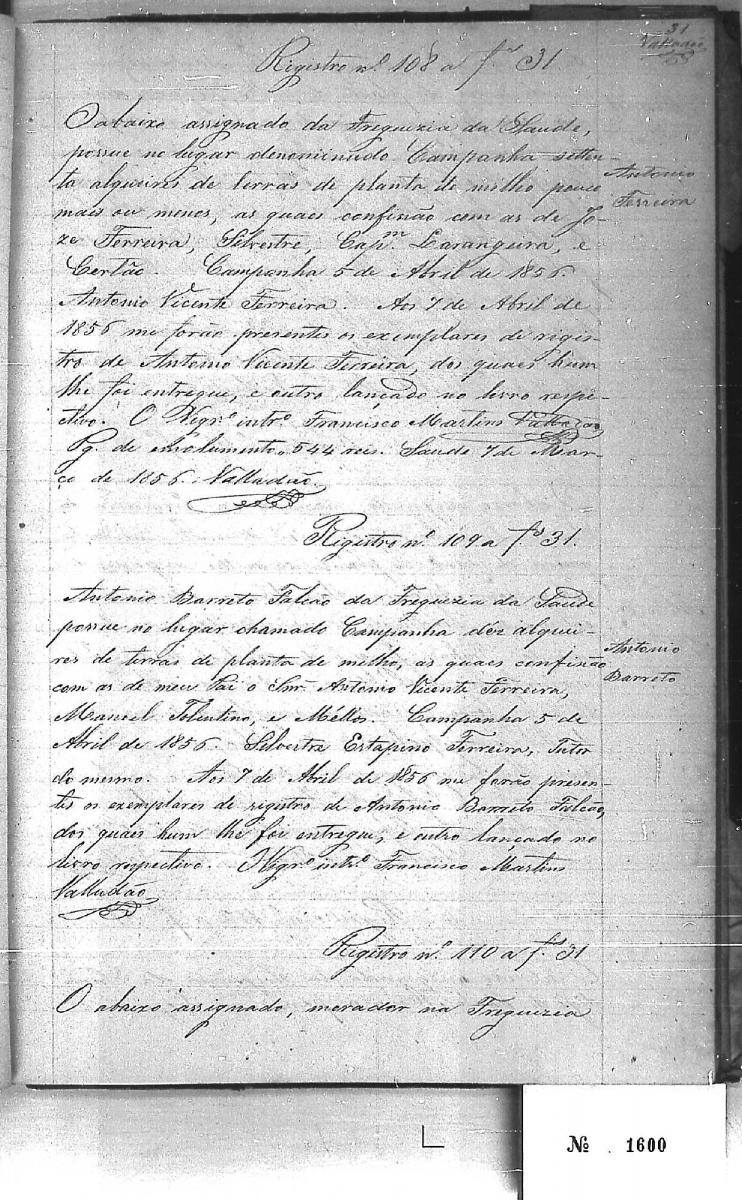 31
Valladão
Registro nº 108 a fs 31
O abaixo assignado da Freguezia da Saude,
possue no lugar denominado Campanha setten-
ta alqueires de terras de planta de milho pouco
mais ou menos, as quaes confinão com as de Jo-
ze Ferreira, Silvestre, Capm. Larangeira, e
Certão. Campanha 5 de Abril de 1856.
Antonio Vicente Ferreira. Aos 7 de Abril de
1856 me forão presentes os exemplares de rigis-
tro de Antonio Vicente Ferreira, dos quaes hum
lhe foi entregue, e outro lançado no livro respe-
ctivo. O Vigrº intrº Francisco Martins Valladão
Pg. de emolumento 544 reis. Saude 7 de Mar-
ço de 1856. Valladão.
Antonio
Ferreira
Registro nº 109 a fs 31.
Antonio Barreto Falcão da Freguezia da Saude
possue no lugar chamado Campanha déz alquei-
res de terras de planta de milho, as quaes confinão
com as de meu Pai o Snr. Antonio Vicente Ferreira,
Manoel Tolentino, e Méllos. Campanha 5 de
Abril de 1856. Silvestre Ferreira, Tutor
do mesmo. Aos 7 de Abril de 1856 me forão presen-
tes os exemplares de registro de Antonio Barreto Falcão,
dos quaes hum lhe foi entregue, e outro lançado no
livro respectivo. O Vigrº intrº Francisco Martins
Valladão
Antonio
Barreto
Registro nº 110 a fs 31
O abaixo assignado, morador na Freguezia
Nº 1600